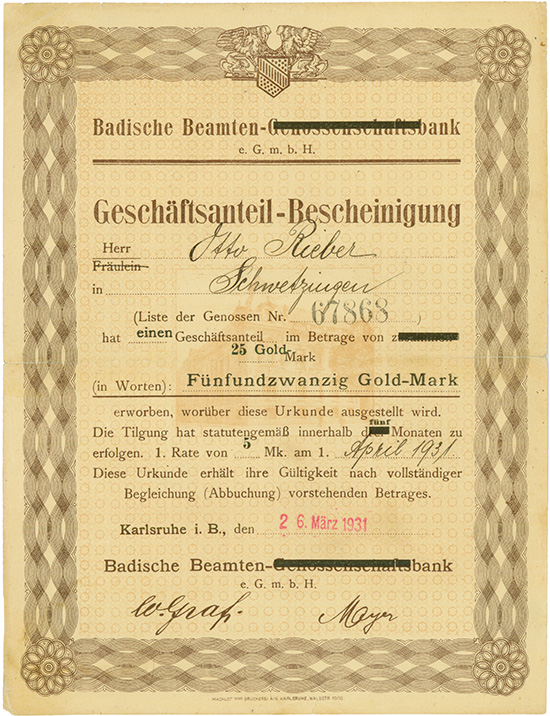 Badische Beamten-Genossenschaftsbank
e. G. m. b. H.
Geschäftsanteil-Bescheinigung
Herr Otto Rieber
Fräulein
in Schwetzingen
(Liste der Genossen Nr. 67868)
hat einen Geschäftsanteil im Betrage von
25 Gold-Mark
(in Worten): Fünfundzwanzig Gold-Mark
erworben, worüber diese Urkunde ausgestellt wird.
Die Tilgung hat statutengemäß innerhalb fünf Monaten zu
erfolgen. 1. Rate von 5 Mk. am 1. April 1931.
Diese Urkunde erhält ihre Gültigkeit nach vollständiger
Begleichung (Abbuchung) vorstehenden Betrages.
Karlsruhe i. B., den 26. März 1931
Badische Beamten-Genossenschaftsbank
e. G. m. b. H.
W. Graf. Mayer